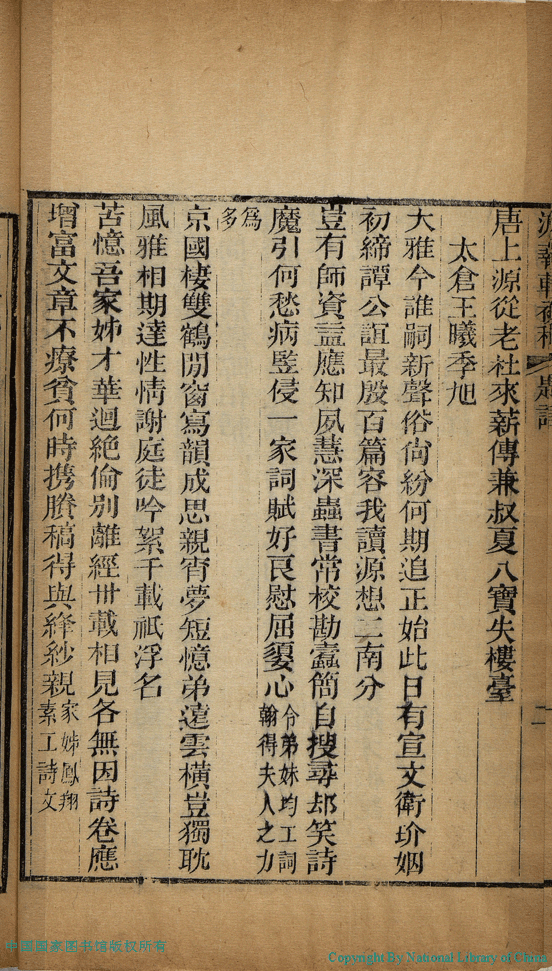 唐上源從老社來薪傳兼叔夏八寶失樓臺
太倉王曦季旭
大雅今誰嗣新聲俗尙紛何期追正始此日有宣文衛玠姻
初締譚公誼最殷百篇容我讀源想二南分
豈有師資益應知夙慧深蟲書常校勘蠹簡自搜尋却笑詩
魔引何愁病監侵一家詞賦好良慰屈嬃心令弟妹均工詞翰得夫人之力
為多
京國棲雙鶴閒窗寫韻成思親宵夢短憶弟遠雲橫豈獨耽
風雅相期達性情謝庭徒吟絮千載祇浮名
苦憶吾家姊才華迴絕倫別離經卅載相見各無因詩卷應
增富文章不療貧何時携賸稿得與絳紗親家姊鳳翔素工詩文
中国国家图书馆版权所有
Copyright By National Library of China